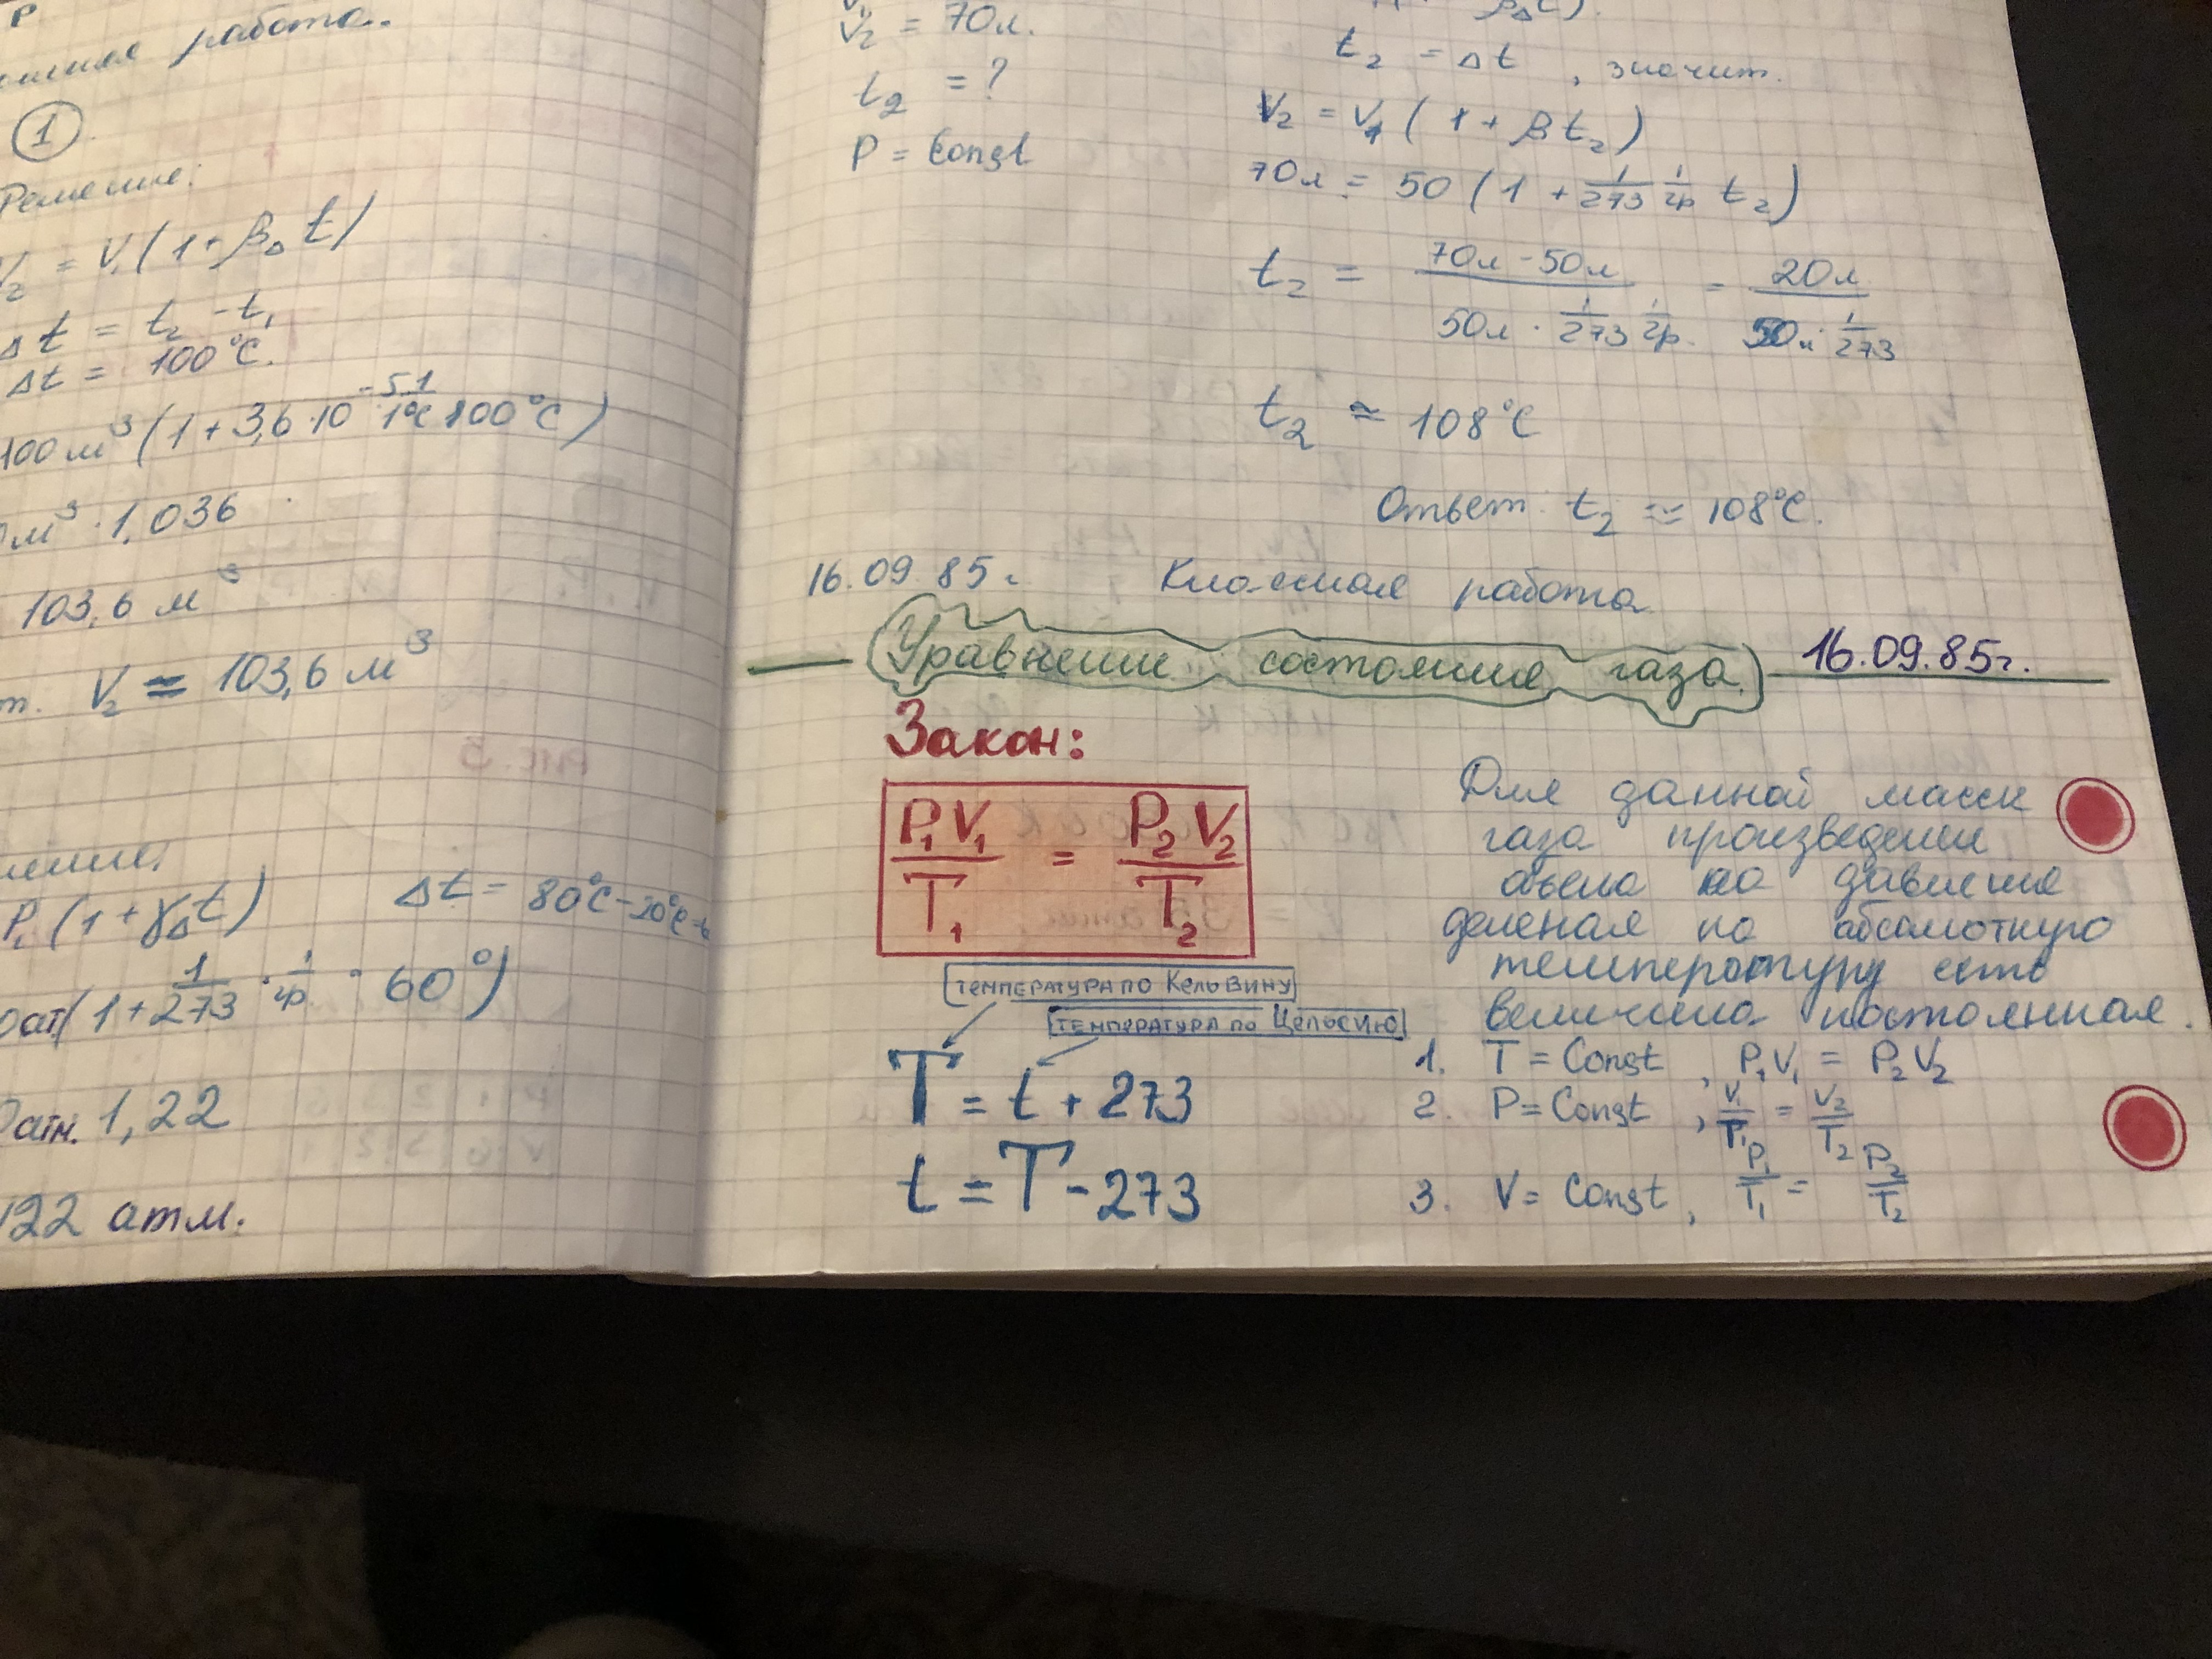 P
работа.
1
Решение:
V₂ = V₁(1+β∆t)
∆t = t₂ - t₁
∆t = 100°C.
100м³(1+3,6·10⁻⁵ 1/1°C 100°C)
м³·1,036
103,6 м³
V₂ ≈ 103,6 м³
P₁(1+γ∆t) ∆t = 80°C-20°C=6
(1+1/273·1/гр·60°)
атм. 1,22
122 атм.
V₂ = 70л.
t₂ = ?
P = Const
t₂ = ∆t, значит.
V₂ = V₁(1+βt₂)
70л = 50(1+1/273 1/гр t₂)
t₂ = 70л-50л / 50л·1/273 1/гр. = 20л / 50л·1/273
t₂ ≈ 108°C
Ответ: t₂ ≈ 108°C.
16.09.85г. Классная работа
Уравнение состояния газа. 16.09.85г.
Закон:
P₁V₁/T₁ = P₂V₂/T₂
температура по Кельвину
температура по Цельсию
T = t + 273
t = T - 273
Для данной массы
газа произведение
объема на давление
деленая на абсолютную
температуру есть
величина постоянная.
1. T = Const, P₁V₁ = P₂V₂
2. P = Const, V₁/T₁ = V₂/T₂
3. V = Const, P₁/T₁ = P₂/T₂